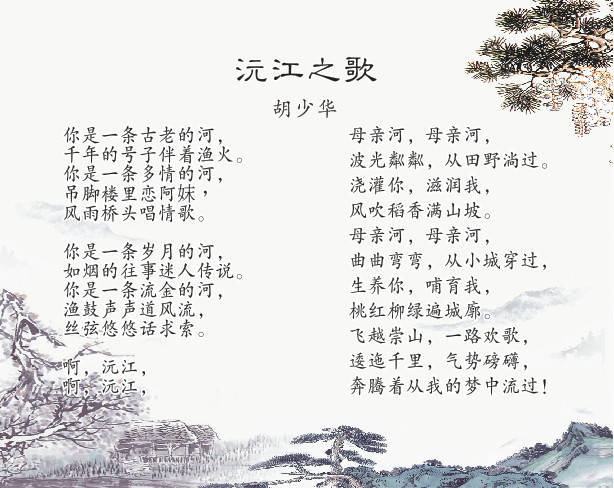 沅江之歌
胡少华
你是一条古老的河，
千年的号子伴着渔火。
你是一条多情的河，
吊脚楼里恋阿妹，
风雨桥头唱情歌。
你是一条岁月的河，
如烟的往事迷人传说。
你是一条流金的河，
渔鼓声声道风流，
丝弦悠悠话求索。
啊，沅江，
啊，沅江，
母亲河，母亲河，
波光粼粼，从田野淌过。
浇灌你，滋润我，
风吹稻香满山坡。
母亲河，母亲河，
曲曲弯弯，从小城穿过，
生养你，哺育我，
桃红柳绿遍城廓。
飞越崇山，一路欢歌，
逶迤千里，气势磅礴，
奔腾着从我的梦中流过！